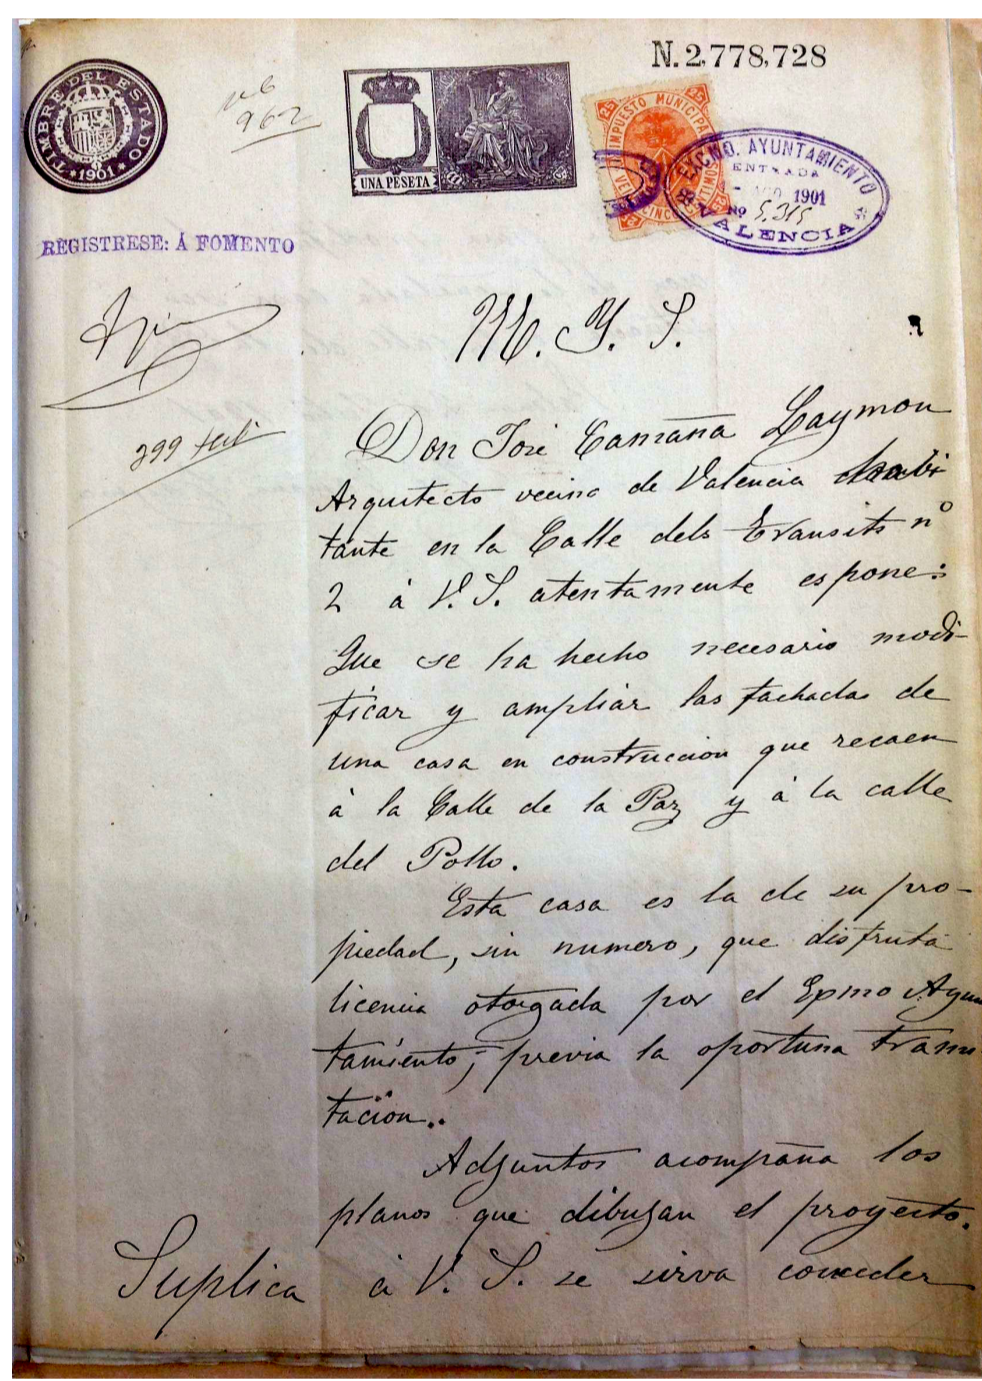 N. 2,778,728
TIMBRE DEL ESTADO
1901
nº 6
962
UNA PESETA
IMPUESTO MUNICIPAL
25
EXCMO. AYUNTAMIENTO
ENTRADA
1901
Nº 5.315
VALENCIA
REGISTRESE: Á FOMENTO
M. Y. S.
299
Don José Camaña Laymon
Arquitecto vecino de Valencia habi
tante en la Calle dels Transits nº
2 á V. S. atentamente espone:
Que se ha hecho necesario modi-
ficar y ampliar las fachadas de
una casa en construccion que recaen
á la Calle de la Paz y á la calle
del Pollo.
Esta casa es la de su pro-
piedad, sin numero, que disfruta
licencia otorgada por el Epmo Ayun
tamiento; previa la oportuna trami
tacion..
Adjuntos acompaña los
planos que dibujan el proyecto.
Suplica á V. S. se sirva conceder